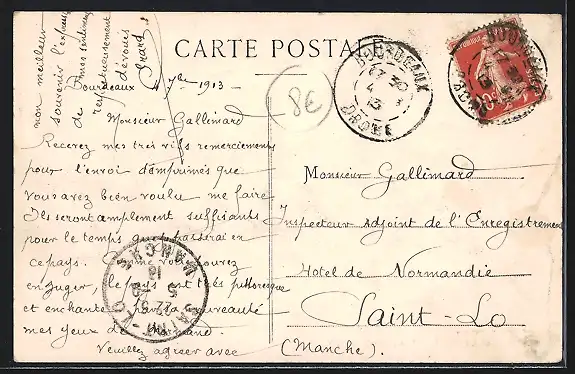 CARTE POSTALE
Bourdeaux 4 7bre 1913
Monsieur Gallimard
Recevez mes très vifs remerciements
pour l'envoi d'imprimés que
vous avez bien voulu me faire
Ils seront amplement suffisants
pour le temps que passerai en
ce pays. Comme vous pouvez
en juger, le pays est très pittoresque
et enchante par sa nouveauté
mes yeux de
Veuillez agréer avec
mon meilleur
souvenir l'expression
de mes sentiments
respectueusement
dévoués
8€
BOURDEAUX
DROME
Monsieur Gallimard
Inspecteur Adjoint de l'Enregistrement
Hotel de Normandie
Saint-Lo
(Manche).
MANCHE